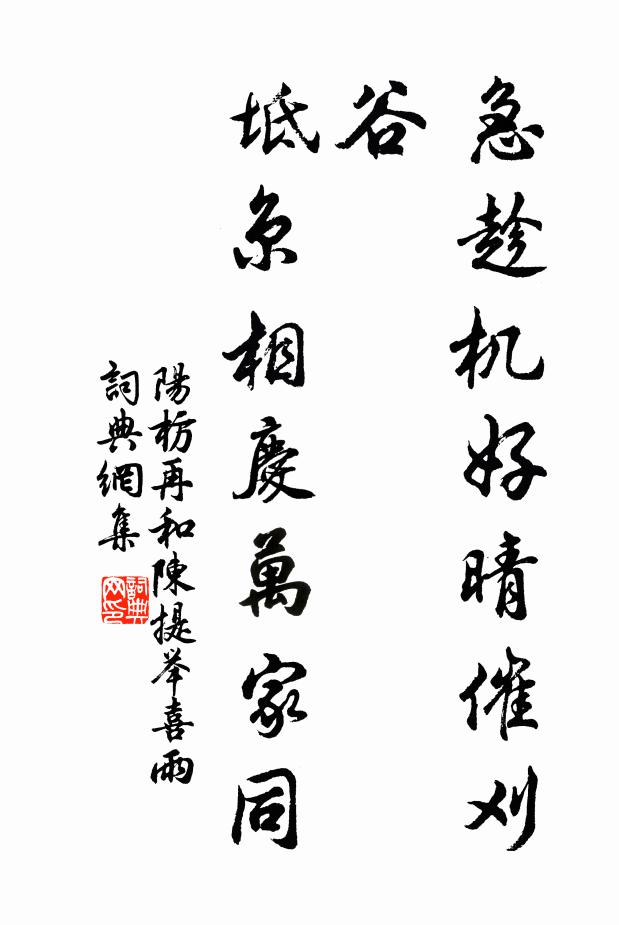 急趁机好晴催刈
谷
坻京相慶萬家同
陽枋再和陳提举喜雨
詞典網集
詞典